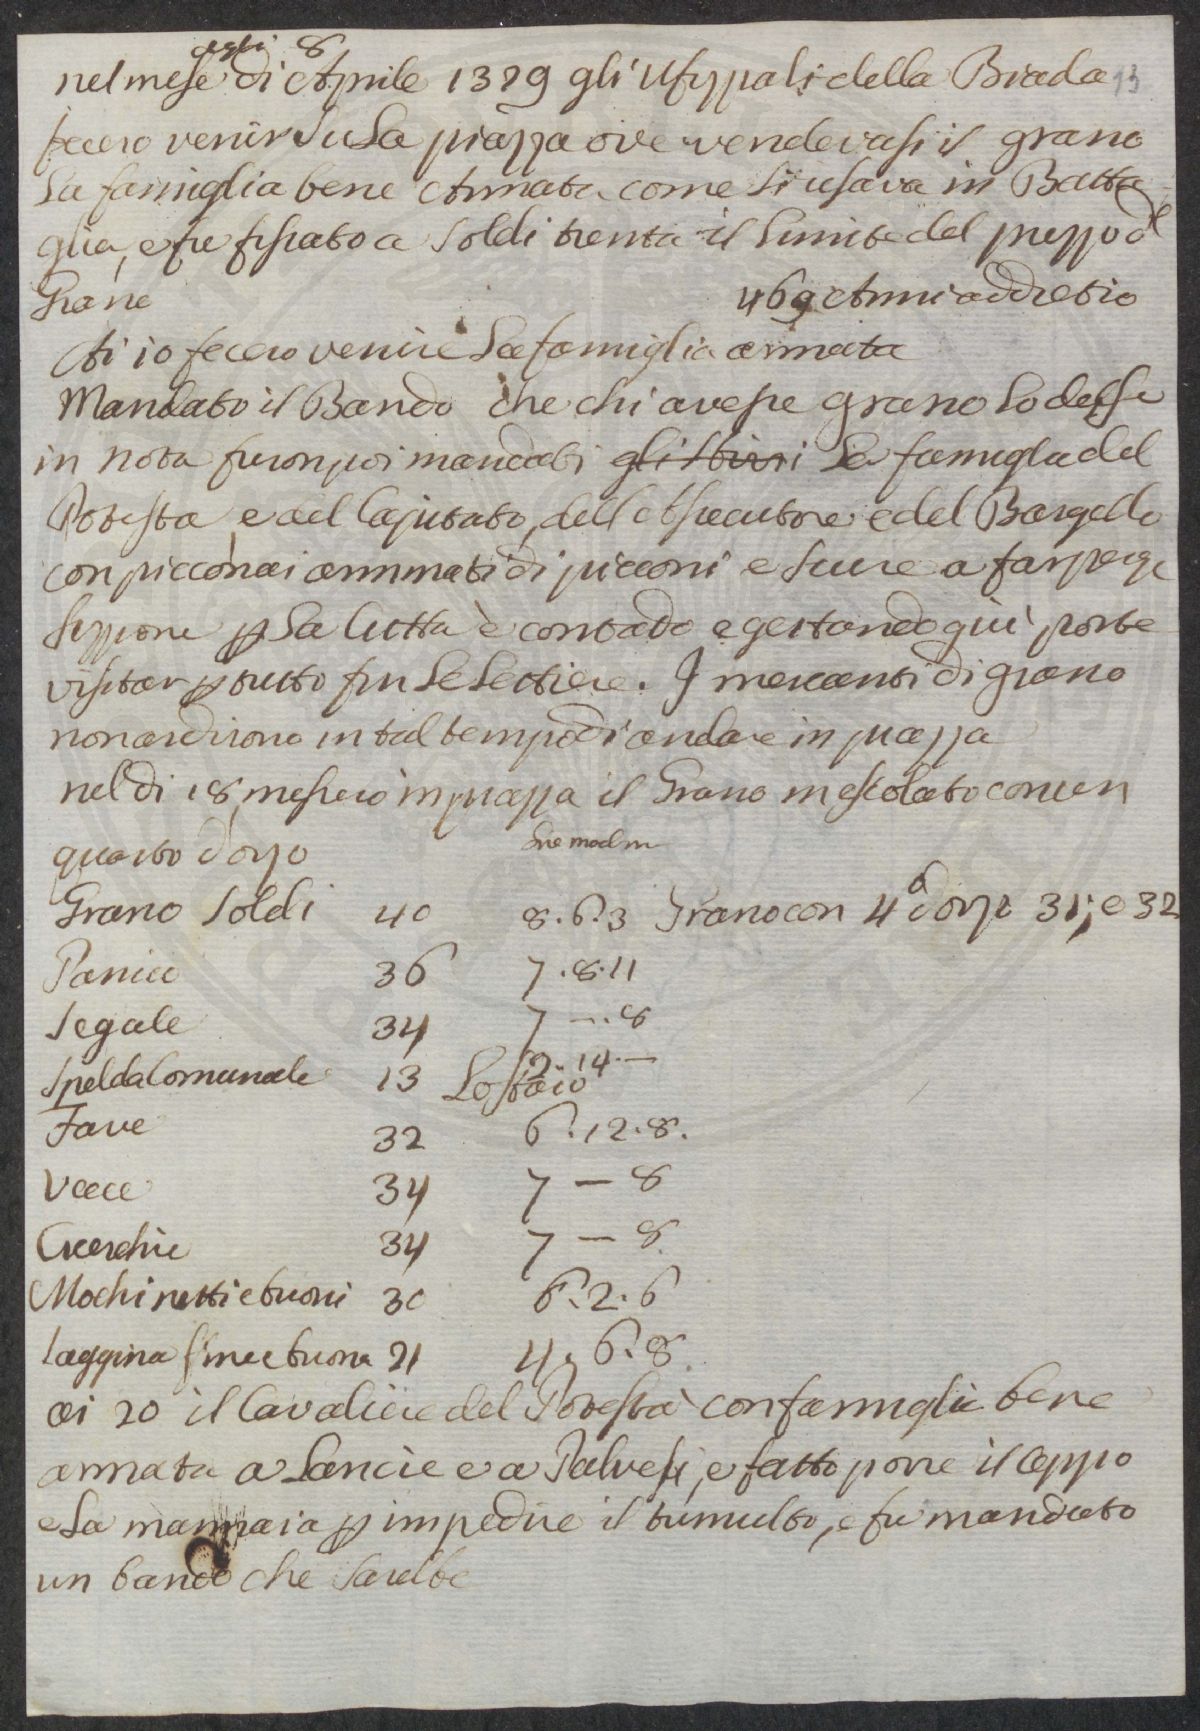 agli 8
nel mese di Aprile 1329 gli Ufizzali della Biada 13
fecero venir Su La piazza ove vendevasi il grano
La famiglia bene Armata come Si usava in Batta
glia, e fu fissato a Soldi trenta il Limite del prezzo dl
Grane
469 Anni addietio
Ai 10 fecero venire La famiglia armata
Mandato il Bando che chi avesse grano Lo desse
in nota furon poi mandati gli Sbirri La famiglia del
Potesta, e del Capitato, dell Esecutore e del Bargello
con picconai armmati di picconi e Scure a far perqe
Sizzione p La Citta è contado e gettando giù porte
visitar p tutto fin Le Lettiere. I mercanti di grano
non ardirono in tal tempo di andare in piazza
nel di 18 messero in piazza il Grano mescolato con un
quarto d'orzo
Grano Soldi 40 8.6.3 Grano con 4o d'orzo 31; e 32
Panico 36 7.8.11
Segale 34 7 — . 8
Spelda Comunale 13 Lo Staio 2.14.—
Fave 32 6.12.8.
Vecce 34 7 — 8
Cicerchie 34 7 — 8
Mochi netti e buoni 30 6.2.6
Saggina fine e buona 21 4.6.8
ai 20 il Cavaliere del Potestà con famiglie bene
armata a Lancie e a Palvesi, e fatto porre il Ceppo
e La mannaia p impedire il tumulto, e fu mandato
un bando che Sarebbe